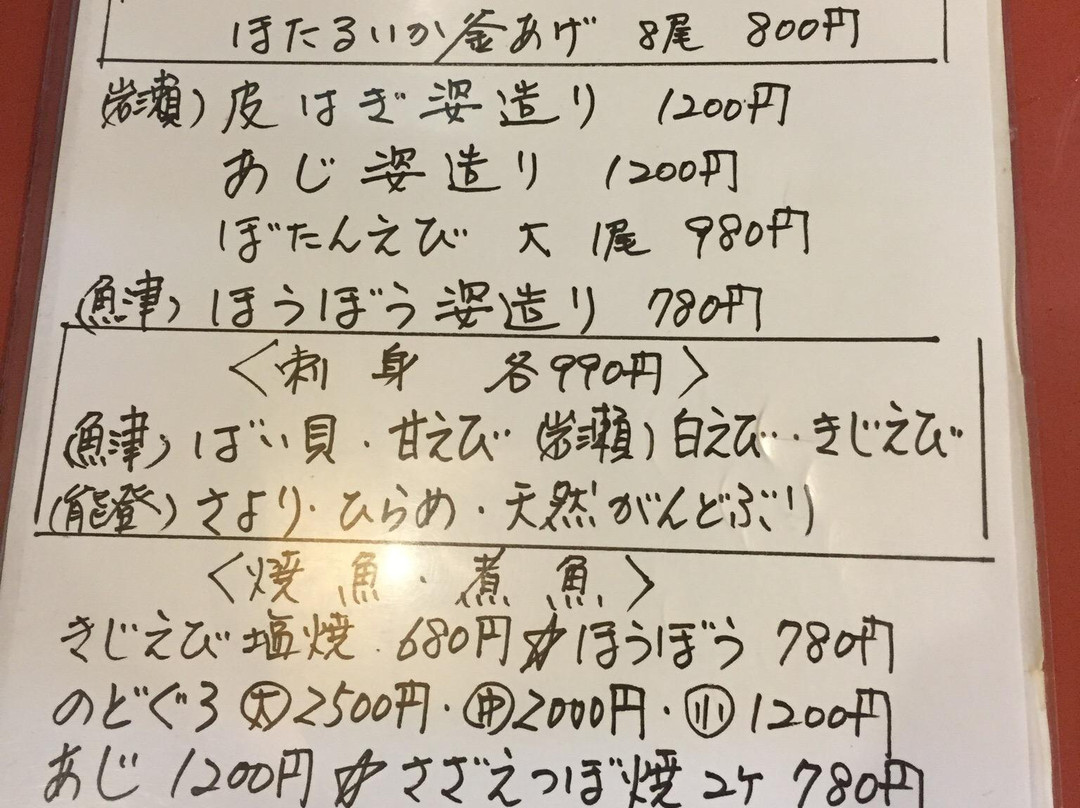 ほたるいか釜あげ 8尾 800円
(岩瀬) 皮はぎ姿造り 1200円
あじ姿造り 1200円
ぼたんえび 大 1尾 980円
(魚津) ほうぼう姿造り 780円
〈刺身 各990円〉
(魚津) ばい貝・甘えび (岩瀬) 白えび・きじえび
(能登) さより・ひらめ・天然がんどぶり
〈焼魚・煮魚〉
きじえび塩焼 680円 ☆ ほうぼう 780円
のどぐろ ㊤2500円・㊥2000円・㊦1200円
あじ 1200円 ☆ さざえつぼ焼 2ケ 780円